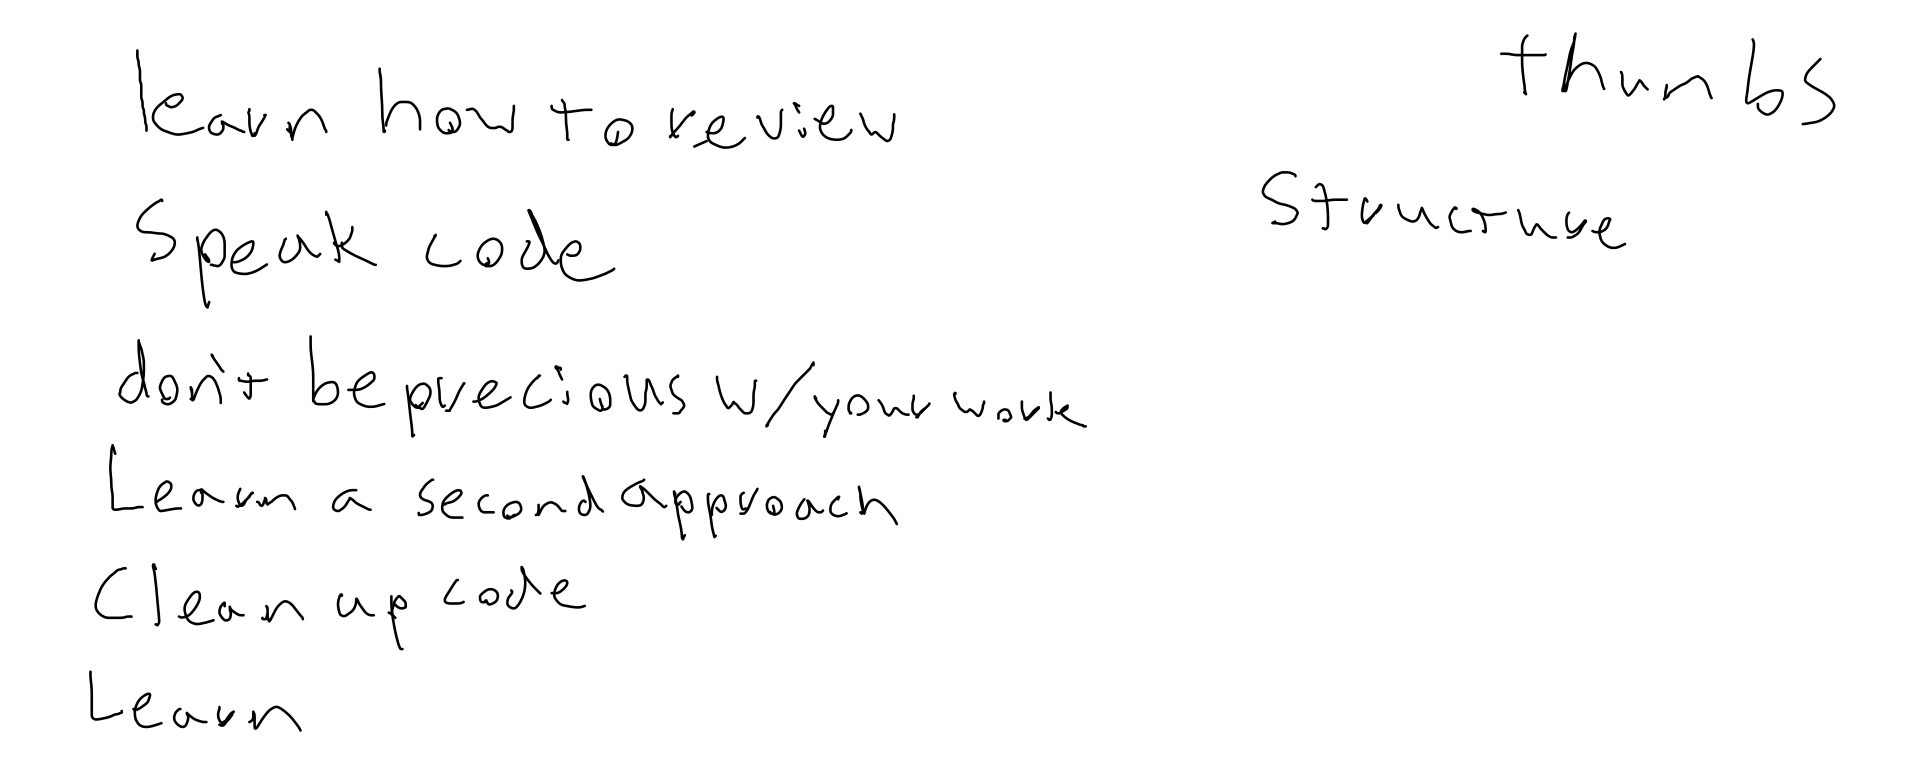 learn how to review
Speak code
don't be precious w/ your work
Learn a second approach
Clean up code
Learn
thumbs
Structure